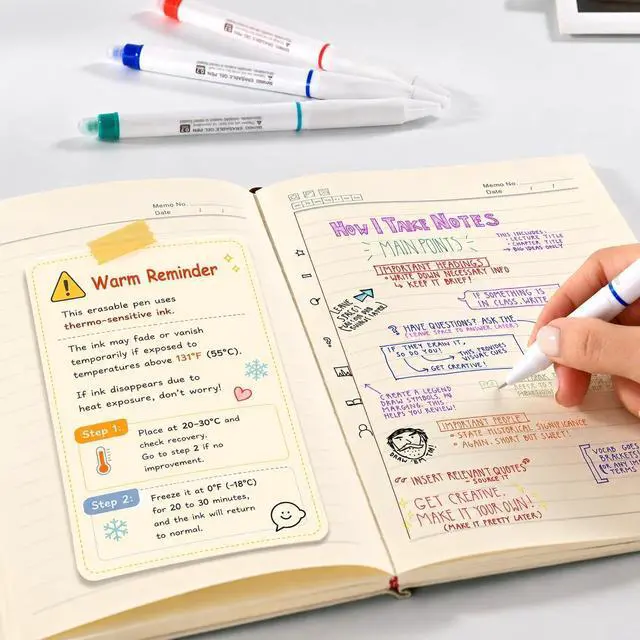 ERASABLE GEL PEN
0.7
ERASABLE GEL PEN
0.7
Memo No.
Date / /
Warm Reminder
This erasable pen uses
thermo-sensitive ink.
The ink may fade or vanish
temporarily if exposed to
temperatures above 131°F (55°C).
If ink disappears due to
heat exposure, don't worry!
Step 1:
Place at 20-30°C and
check recovery.
Go to step 2 if no
improvement.
Step 2:
Freeze it at 0°F (-18°C)
for 20 to 30 minutes,
and the ink will return
to normal.
Memo No.
Date / /
HOW I TAKE NOTES
MAIN POINTS
THIS INCLUDES:
- LECTURE TITLE
- CHAPTER TITLE
→ BIG IDEAS ONLY!
IMPORTANT HEADINGS
• WRITE DOWN NECESSARY INFO
↳ KEEP IT BRIEF!
LEAVE
SPACE!
IF SOMETHING IS
IN CLASS, WRITE
HAVE QUESTIONS? ASK THE
(LEAVE SPACE TO ANSWER LATER)
IF THEY DRAW IT,
SO DO YOU!
THIS PROVIDES
VISUAL CUES
GET CREATIVE!
CREATE A LEGEND
DRAW SYMBOLS IN
MARGINS. THIS
HELPS YOU REVIEW!
IMPORTANT PEOPLE
• STATE HISTORICAL SIGNIFICANCE
• AGAIN, SHORT BUT SWEET!
DRAW 'EM IN!
VOCAB GOES
BRACKETS
FOR ANY IMP
TERMS
"INSERT RELEVANT QUOTES"
- SOURCE IT
GET CREATIVE,
MAKE IT YOUR OWN!
(MAKE IT PRETTY LATER)